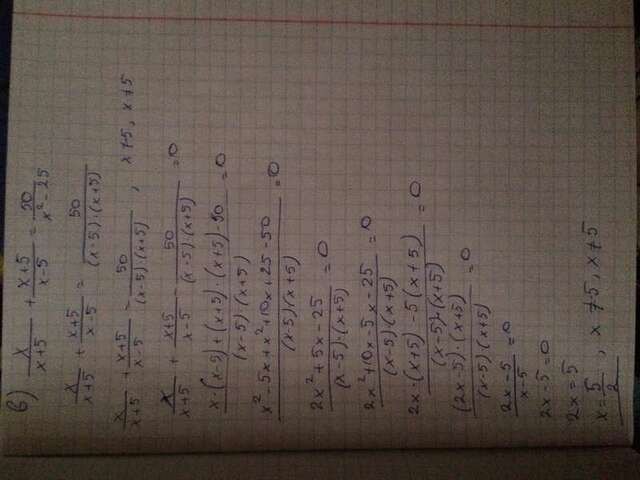 в) x/(x+5) + (x+5)/(x-5) = 50/(x²-25)
x/(x+5) + (x+5)/(x-5) = 50/((x-5)·(x+5))
x/(x+5) + (x+5)/(x-5) = 50/((x-5)·(x+5)) , x≠-5, x≠5
x/(x+5) + (x+5)/(x-5) - 50/((x-5)·(x+5)) = 0
(x·(x-5)+(x+5)·(x+5)-50)/((x-5)·(x+5)) = 0
(x²-5x+x²+10x+25-50)/((x-5)(x+5)) = 0
(2x²+5x-25)/((x-5)·(x+5)) = 0
(2x²+10x-5x-25)/((x-5)·(x+5)) = 0
(2x·(x+5)-5(x+5))/((x-5)·(x+5)) = 0
((2x-5)·(x+5))/((x-5)·(x+5)) = 0
(2x-5)/(x-5) = 0
2x-5=0
2x=5
x=5/2 , x≠-5, x≠5